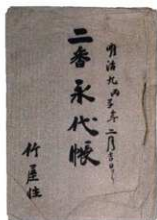 明治九丙子年二月吉日
二番永代帳
竹屋